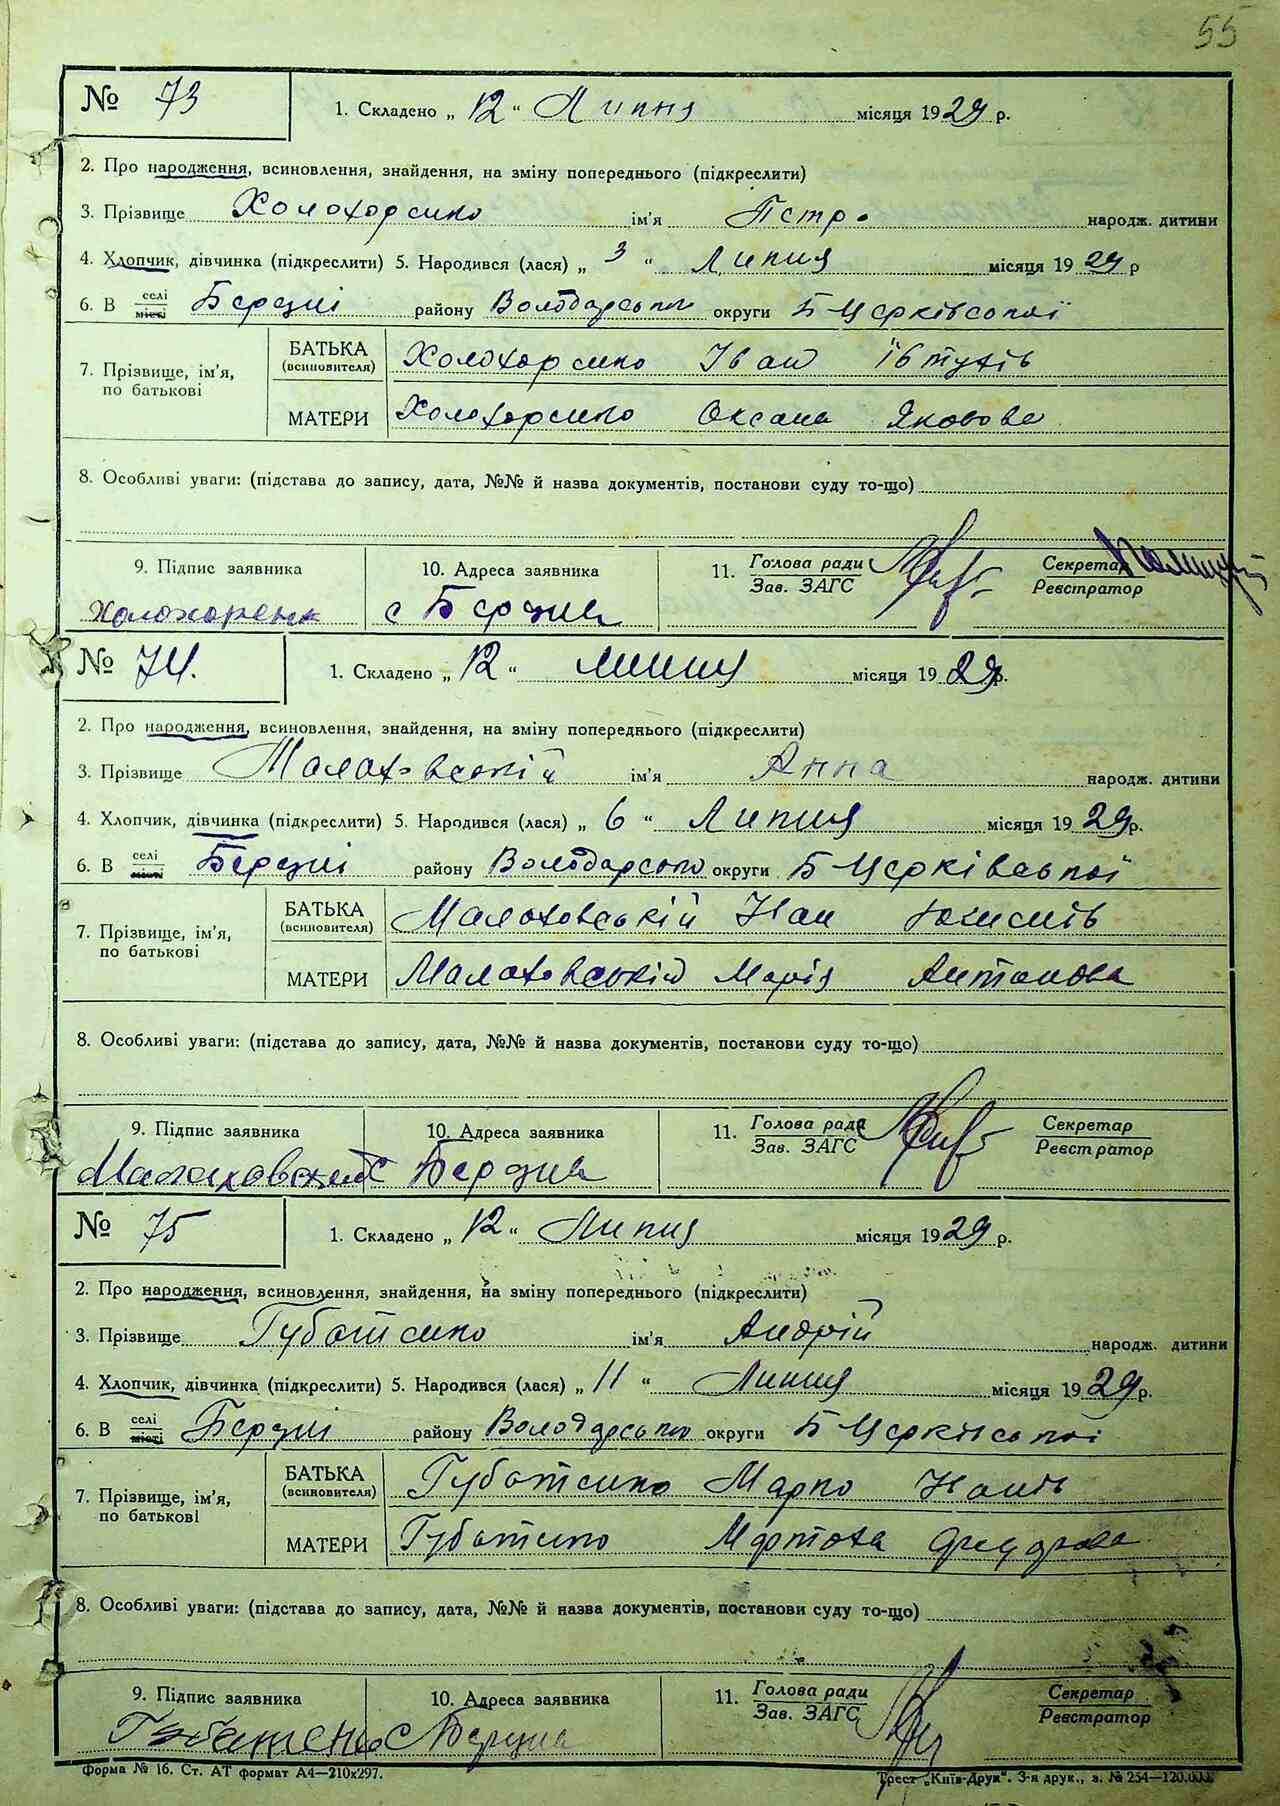 55
№ 73 1. Складено „ 12 “ Липня місяця 1929 р.
2. Про народження, всиновлення, знайдення, на зміну попереднього (підкреслити)
3. Прізвище Холохоренко ім'я Петро народж. дитини
4. Хлопчик, дівчинка (підкреслити) 5. Народився (лася) „ 3 “ Липня місяця 1929 р
6. В селі місті району Володарсько округи Б Церківської
БАТЬКА
(всиновителя) Холохоренко Іван Івтухів
7. Прізвище, ім'я,
по батькові
МАТЕРИ Холохоренко Оксана Яковова
8. Особливі уваги: (підстава до запису, дата, №№ й назва документів, постанови суду то-що)
9. Підпис заявника 10. Адреса заявника 11. Голова ради Секретар
Зав. ЗАГС Реєстратор
Холохоренк с
№ 74. 1. Складено „ 12 “ липня місяця 1929 р.
2. Про народження, всиновлення, знайдення, на зміну попереднього (підкреслити)
3. Прізвище Малаховській ім'я Анна народж. дитини
4. Хлопчик, дівчинка (підкреслити) 5. Народився (лася) „ 6 “ Липня місяця 1929 р.
6. В селі місті району Володарсько округи Б Церківської
БАТЬКА
(всиновителя) Малаховській
7. Прізвище, ім'я,
по батькові
МАТЕРИ Малаховській Марія Антонова
8. Особливі уваги: (підстава до запису, дата, №№ й назва документів, постанови суду то-що)
9. Підпис заявника 10. Адреса заявника 11. Голова ради Секретар
Зав. ЗАГС Реєстратор
Малаховский с
№ 75 1. Складено „ 12 “ Липня місяця 1929 р.
2. Про народження, всиновлення, знайдення, на зміну попереднього (підкреслити)
3. Прізвище Губатенко ім'я Андрій народж. дитини
4. Хлопчик, дівчинка (підкреслити) 5. Народився (лася) „ 11 “ Липня місяця 1929 р.
6. В селі місті району Володарсько округи Б Церківської
БАТЬКА
(всиновителя) Губатенко Марко
7. Прізвище, ім'я,
по батькові
МАТЕРИ Губатенко
8. Особливі уваги: (підстава до запису, дата, №№ й назва документів, постанови суду то-що)
9. Підпис заявника 10. Адреса заявника 11. Голова ради Секретар
Зав. ЗАГС Реєстратор
Губатенко с
Форма № 16. Ст. АТ формат А4—210х297. Трест „Київ-Друк“. 3-я друк., з. № 254—120.000.